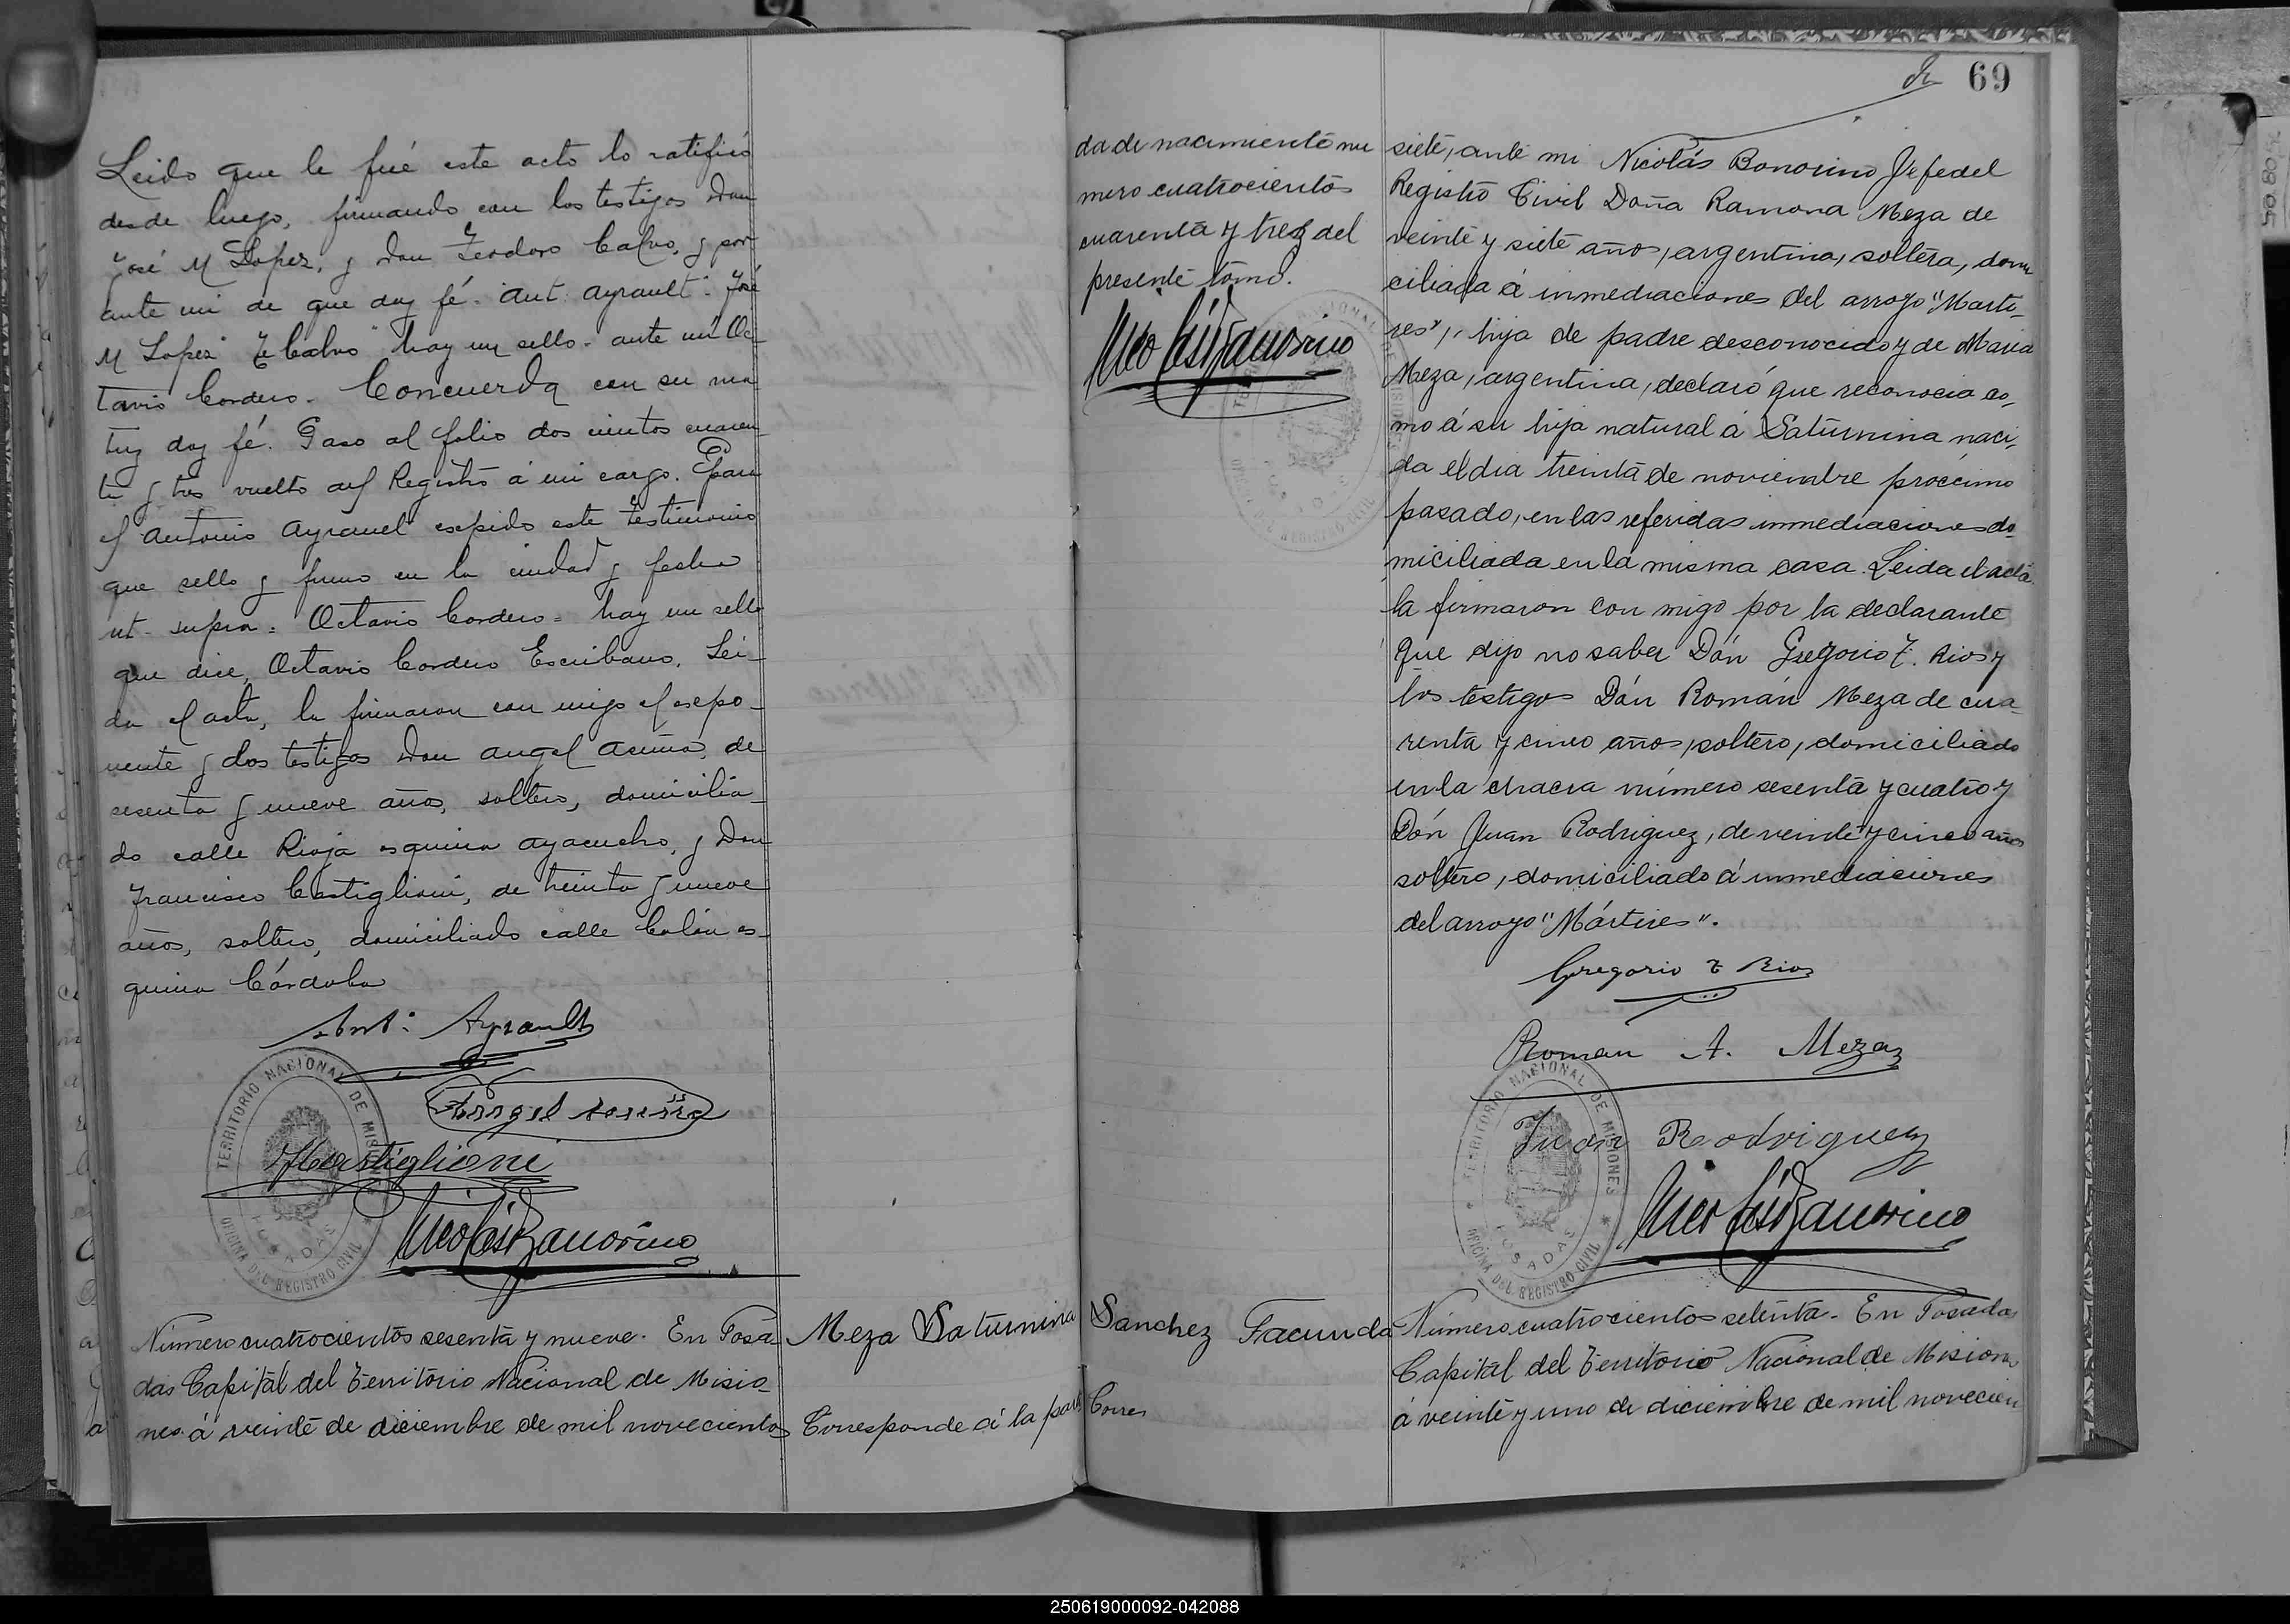 Leido que le fué este acto lo ratificó
desde luego, firmando con los testigos Don
José M Lopez, y Don Teodoro Calvo, y por
ante mi de que doy fé. Ant. Ayrault. José
M Lopez" T Calvo" hay un sello. ante mi Oc-
tavio Cordero. Concuerda con su ma
triz doy fé. Paso al folio dos cientos cuaren
ta y tres vuelto del Registro á mi cargo. Para
el Antonio Ayrauel espido este testimonio
que sello y firmo en la ciudad y fecha
ut. supra = Octavio Cordero = hay un sello
que dice, Octavio Cordero Escribano. Lei-
da el acta, la firmaron con migo el espo-
nente y dos testigos Don Angel Acuña, de
sesenta y nueve años, soltero, domicilia-
do calle Rioja esquina Ayacucho, y Don
Francisco Castiglioni, de treinta y nueve
años, soltero, domiciliado calle Colón es-
quina Córdoba
Ant. Ayrault
Angel Acuña
Castiglioni
Nicolás Bonorino
TERRITORIO NACIONAL DE MISIONES
POSADAS
OFICINA DEL REGISTRO CIVIL
Número cuatrocientos sesenta y nueve. En Posa-
das Capital del Territorio Nacional de Misio-
nes á veinte de diciembre de mil novecientos
Meza Saturnina
Corresponde á la parti
da de nacimiento nu
mero cuatrocientos
cuarenta y tres del
presente tomo.
Nicolás Bonorino
69
siete, ante mi Nicolás Bonorino Jefe del
Registro Civil Doña Ramona Meza de
veinte y siete año, argentina, soltera, domi
ciliada á inmediaciones del arroyo "Marti-
res", hija de padre desconocido y de Maria
Meza, argentina, declaró que reconocia co-
mo á su hija natural á Saturnina naci-
da el dia treinta de noviembre proccimo
pasado, en las referidas inmediaciones do-
miciliada en la misma casa. Leida el acta
la firmaron con migo por la declarante
que dijo no saber Dón Gregorio T. Rios y
los testigos Dón Román Meza de cua-
renta y cinco años, soltero, domiciliado
en la chacra número sesenta y cuatro y
Dón Juan Rodriguez, de veinte y cinco años
soltero, domiciliado á inmediaciones
del arroyo "Mártires".
Gregorio T Rios
Roman A. Meza
Juan Reodriguez
Nicolás Bonorino
TERRITORIO NACIONAL DE MISIONES
POSADAS
OFICINA DEL REGISTRO CIVIL
Sanchez Facunda
Corres
Número cuatrocientos setenta. En Posadas
Capital del Territorio Nacional de Misiones
á veinte y uno de diciembre de mil novecien
250619000092-042088